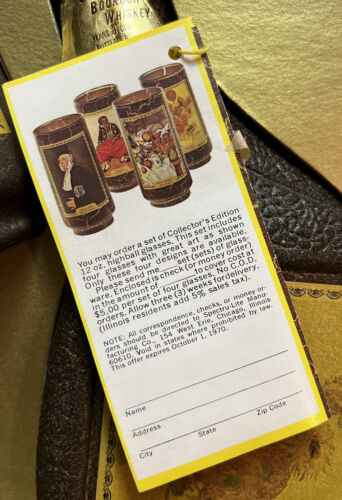 BOURBON
WHISKEY
YEARS
You may order a set of Collector's Edition
12 oz. highball glasses. This set includes
four glasses with great art as shown
Only these four designs are available.
Please send me set (sets) of glass-
ware. Enclosed is check (or money order)
in the amount of to cover cost at
$5.00 per set of four glasses. No C.O.D.
orders. Allow three (3) weeks for delivery.
(Illinois residents add 5% sales tax).
NOTE: All correspondence, checks, or money or-
ders should be directed to Spectrulite Manu-
facturing Co., 154 West Erie, Chicago, Illinois
60610. Void in states where prohibited by law.
This offer expires October 1, 1970.
Name
Address
City State Zip Code